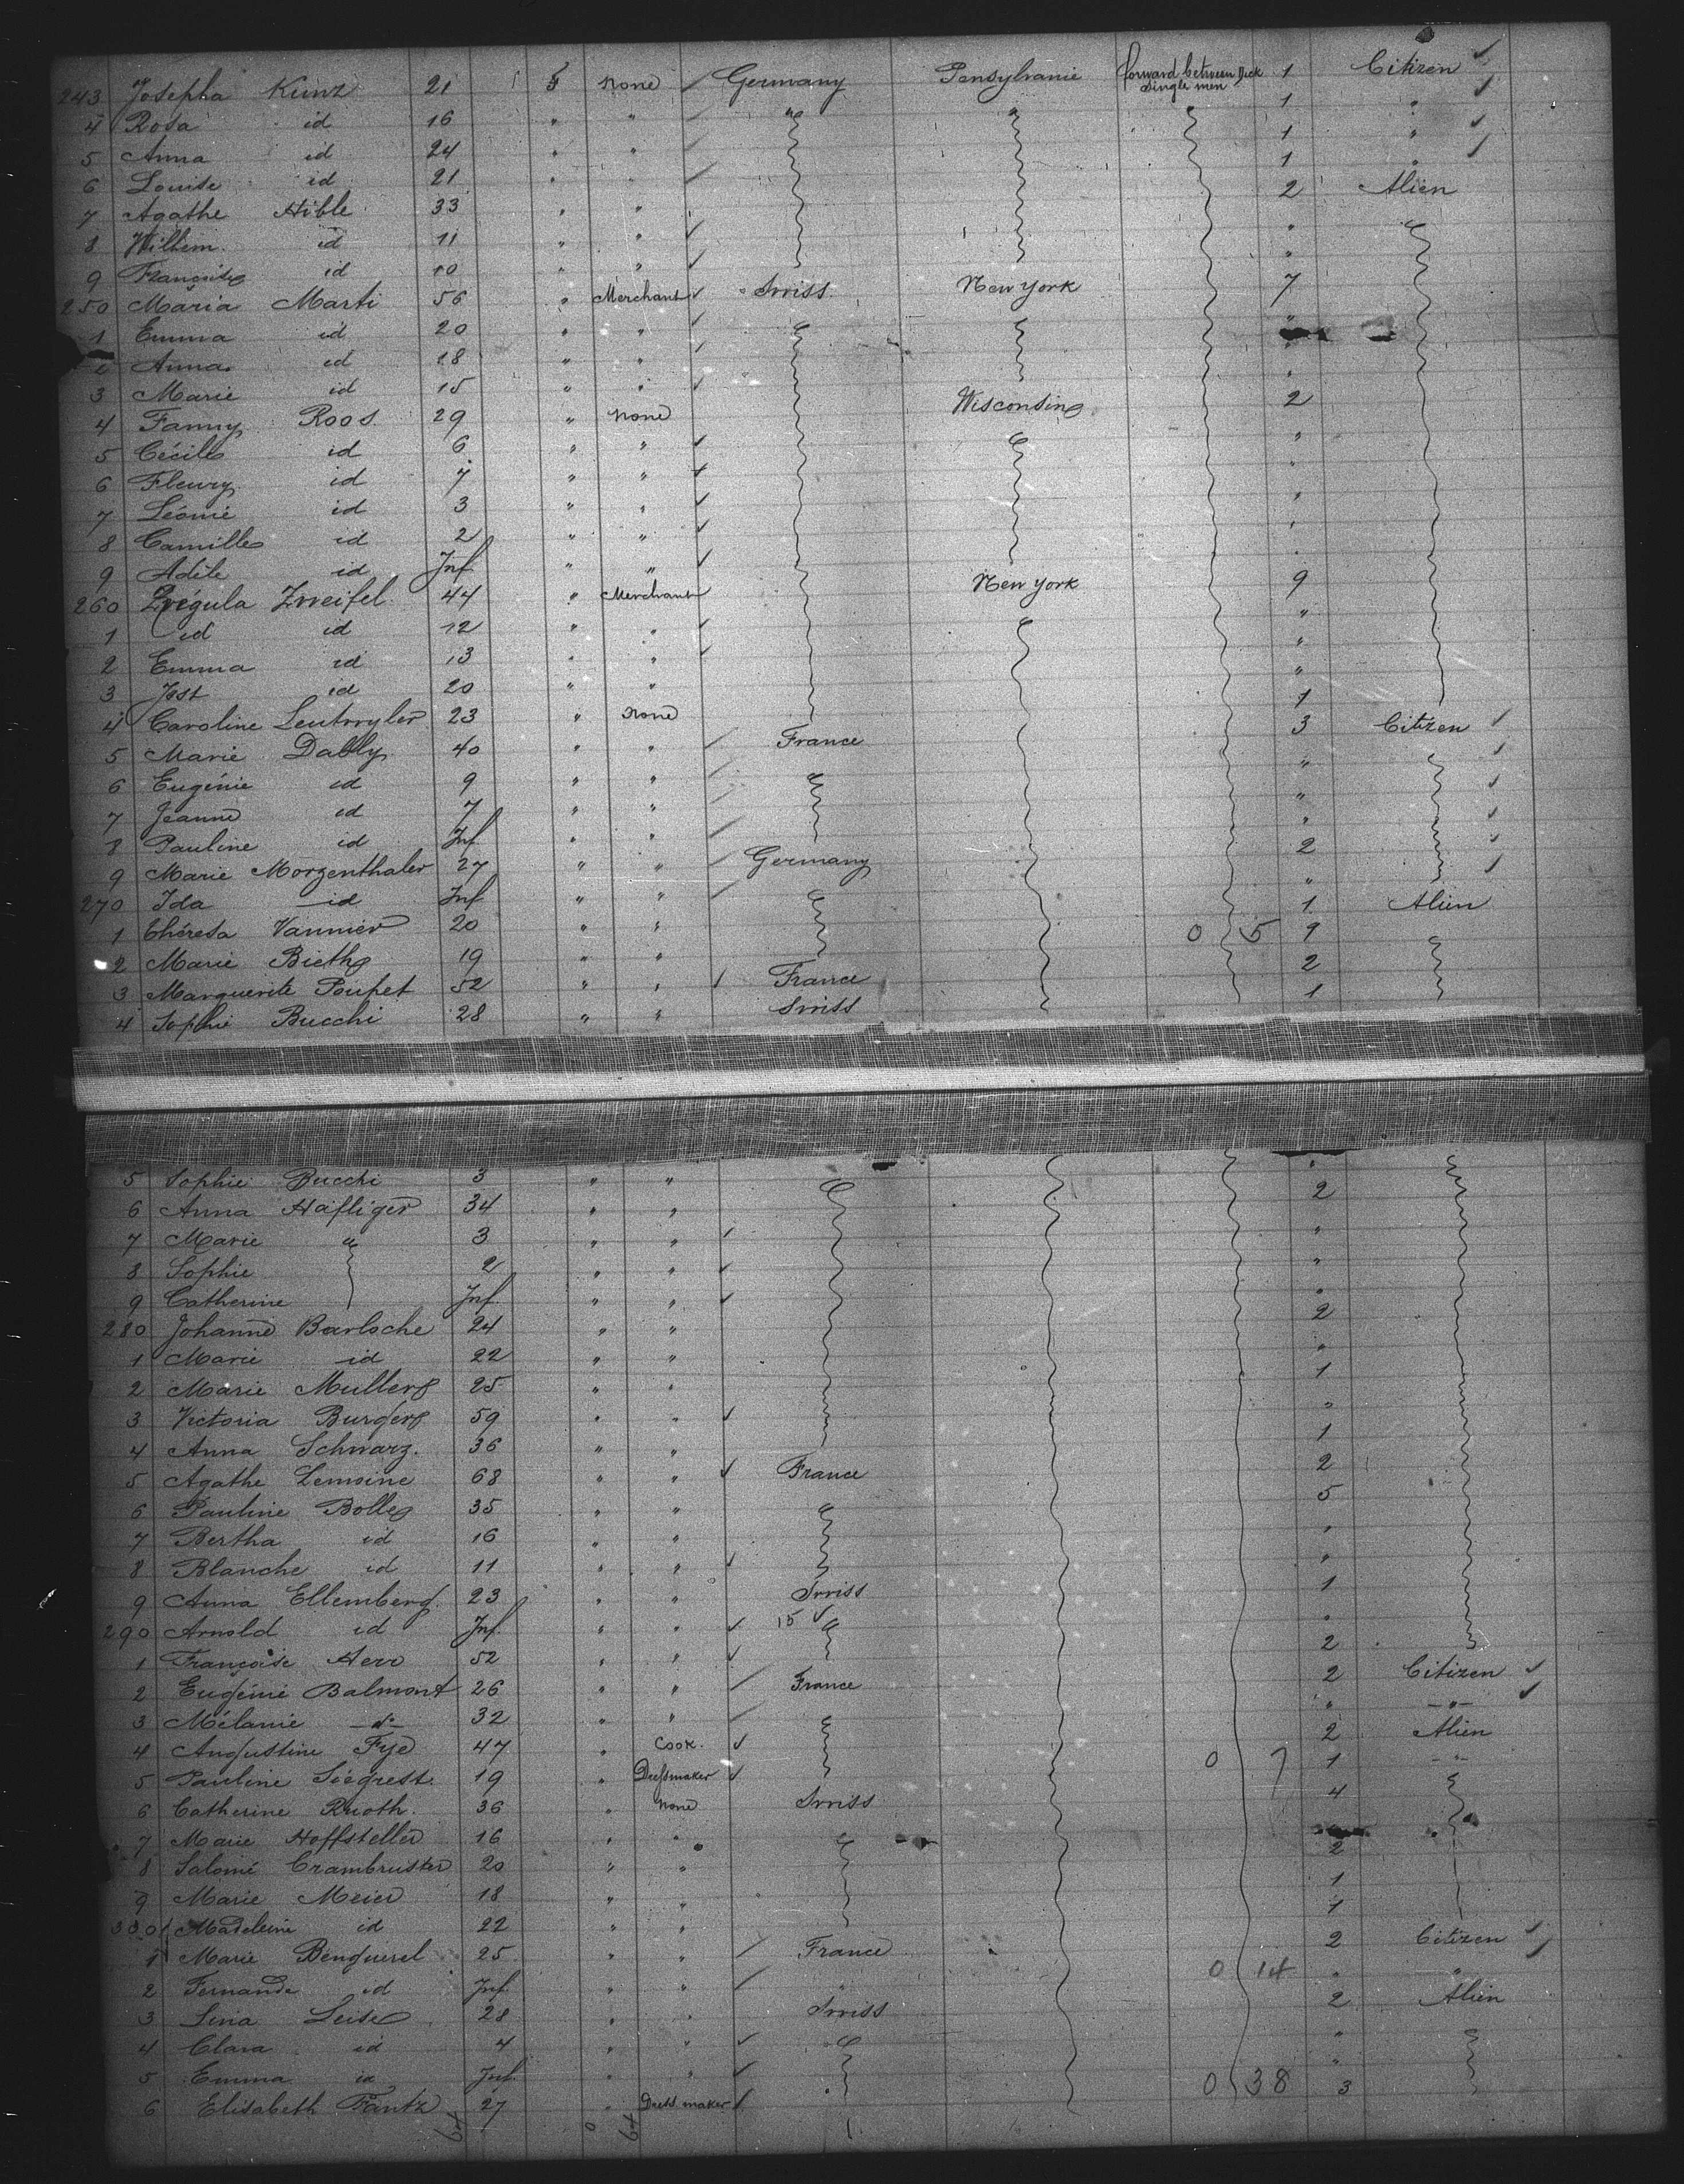 243 Josepha Kunz 21 f none Germany Pensylvanie forward between Deck single men 1 Citizen
4 Rosa id 16 " " 1 "
5 Anna id 24 " " 1 "
6 Louise id 21 " " 1 "
7 Agathe Hible 33 " " 2 Alien
8 Wilhem id 11 " " "
9 Françoise id 10 " " "
250 Maria Marti 56 " Merchant Swiss New York 7
1 Emma id 20 " " "
2 Anna id 18 " " "
3 Marie id 15 " " "
4 Fanny Roos 29 " none Wisconsin 2
5 Cécile id 6 " " "
6 Fleury id 7 " " "
7 Léonie id 3 " " "
8 Camille id 2 " " "
9 Adèle id Inf " "
260 Régula Zweifel 44 " Merchant New York 9
1 id id 12 " " "
2 Emma id 13 " " "
3 Jost id 20 " " "
4 Caroline Leutwyler 23 " none 1
5 Marie Dably 40 " " France 3 Citizen
6 Eugénie id 9 " " "
7 Jeanne id 7 " " "
8 Pauline id Inf " " "
9 Marie Morgenthaler 27 " " Germany 2
270 Ida id Inf " " "
1 Théresa Vannier 20 " " 1 Alien
2 Marie Bieth 19 " " 0 5 9
3 Marguerite Poupet 52 " " France 2
4 Sophie Bucchi 28 " " Swiss 1
5 Sophie Bucchi 3 " " "
6 Anna Häfliger 34 " " 2
7 Marie " 3 " " "
8 Sophie 2 " " "
9 Catherine Inf. " " "
280 Johanne Barloche 24 " " 2
1 Marie id 22 " " "
2 Marie Muller 25 " " 1
3 Victoria Burger 59 " " "
4 Anna Schwarz. 36 " " 1
5 Agathe Lemoine 68 " " France 2
6 Pauline Bolle 35 " " 5
7 Bertha id 16 " " "
8 Blanche id 11 " " "
9 Anna Ellemberg. 23 " " Swiss 1
290 Arnold id Inf. " " 15 "
1 Françoise Herr 52 " " 2
2 Eugénie Balmont 26 " " France 2 Citizen
3 Mélanie d° 32 " " " "
4 Augustine Fye 47 " Cook. 2 Alien
5 Pauline Siegrest. 19 " Dressmaker 0 7 1 "
6 Catherine Ruoth. 36 " none Swiss 4
7 Marie Hoffsteller 16 " "
8 Salomé Crambruster 20 " " 2
9 Marie Meier 18 " " 1
300 Madeleine id 22 " " 1
1 Marie Benguerel 25 " " France 2 Citizen
2 Fernande id Inf. " " " 0 14 " "
3 Lina Leise 28 " " Swiss 2 Alien
4 Clara id 4 " " "
5 Emma id Inf. " " "
6 Elisabeth Fantz 27 " Dress maker 0 38 3
64 0 64